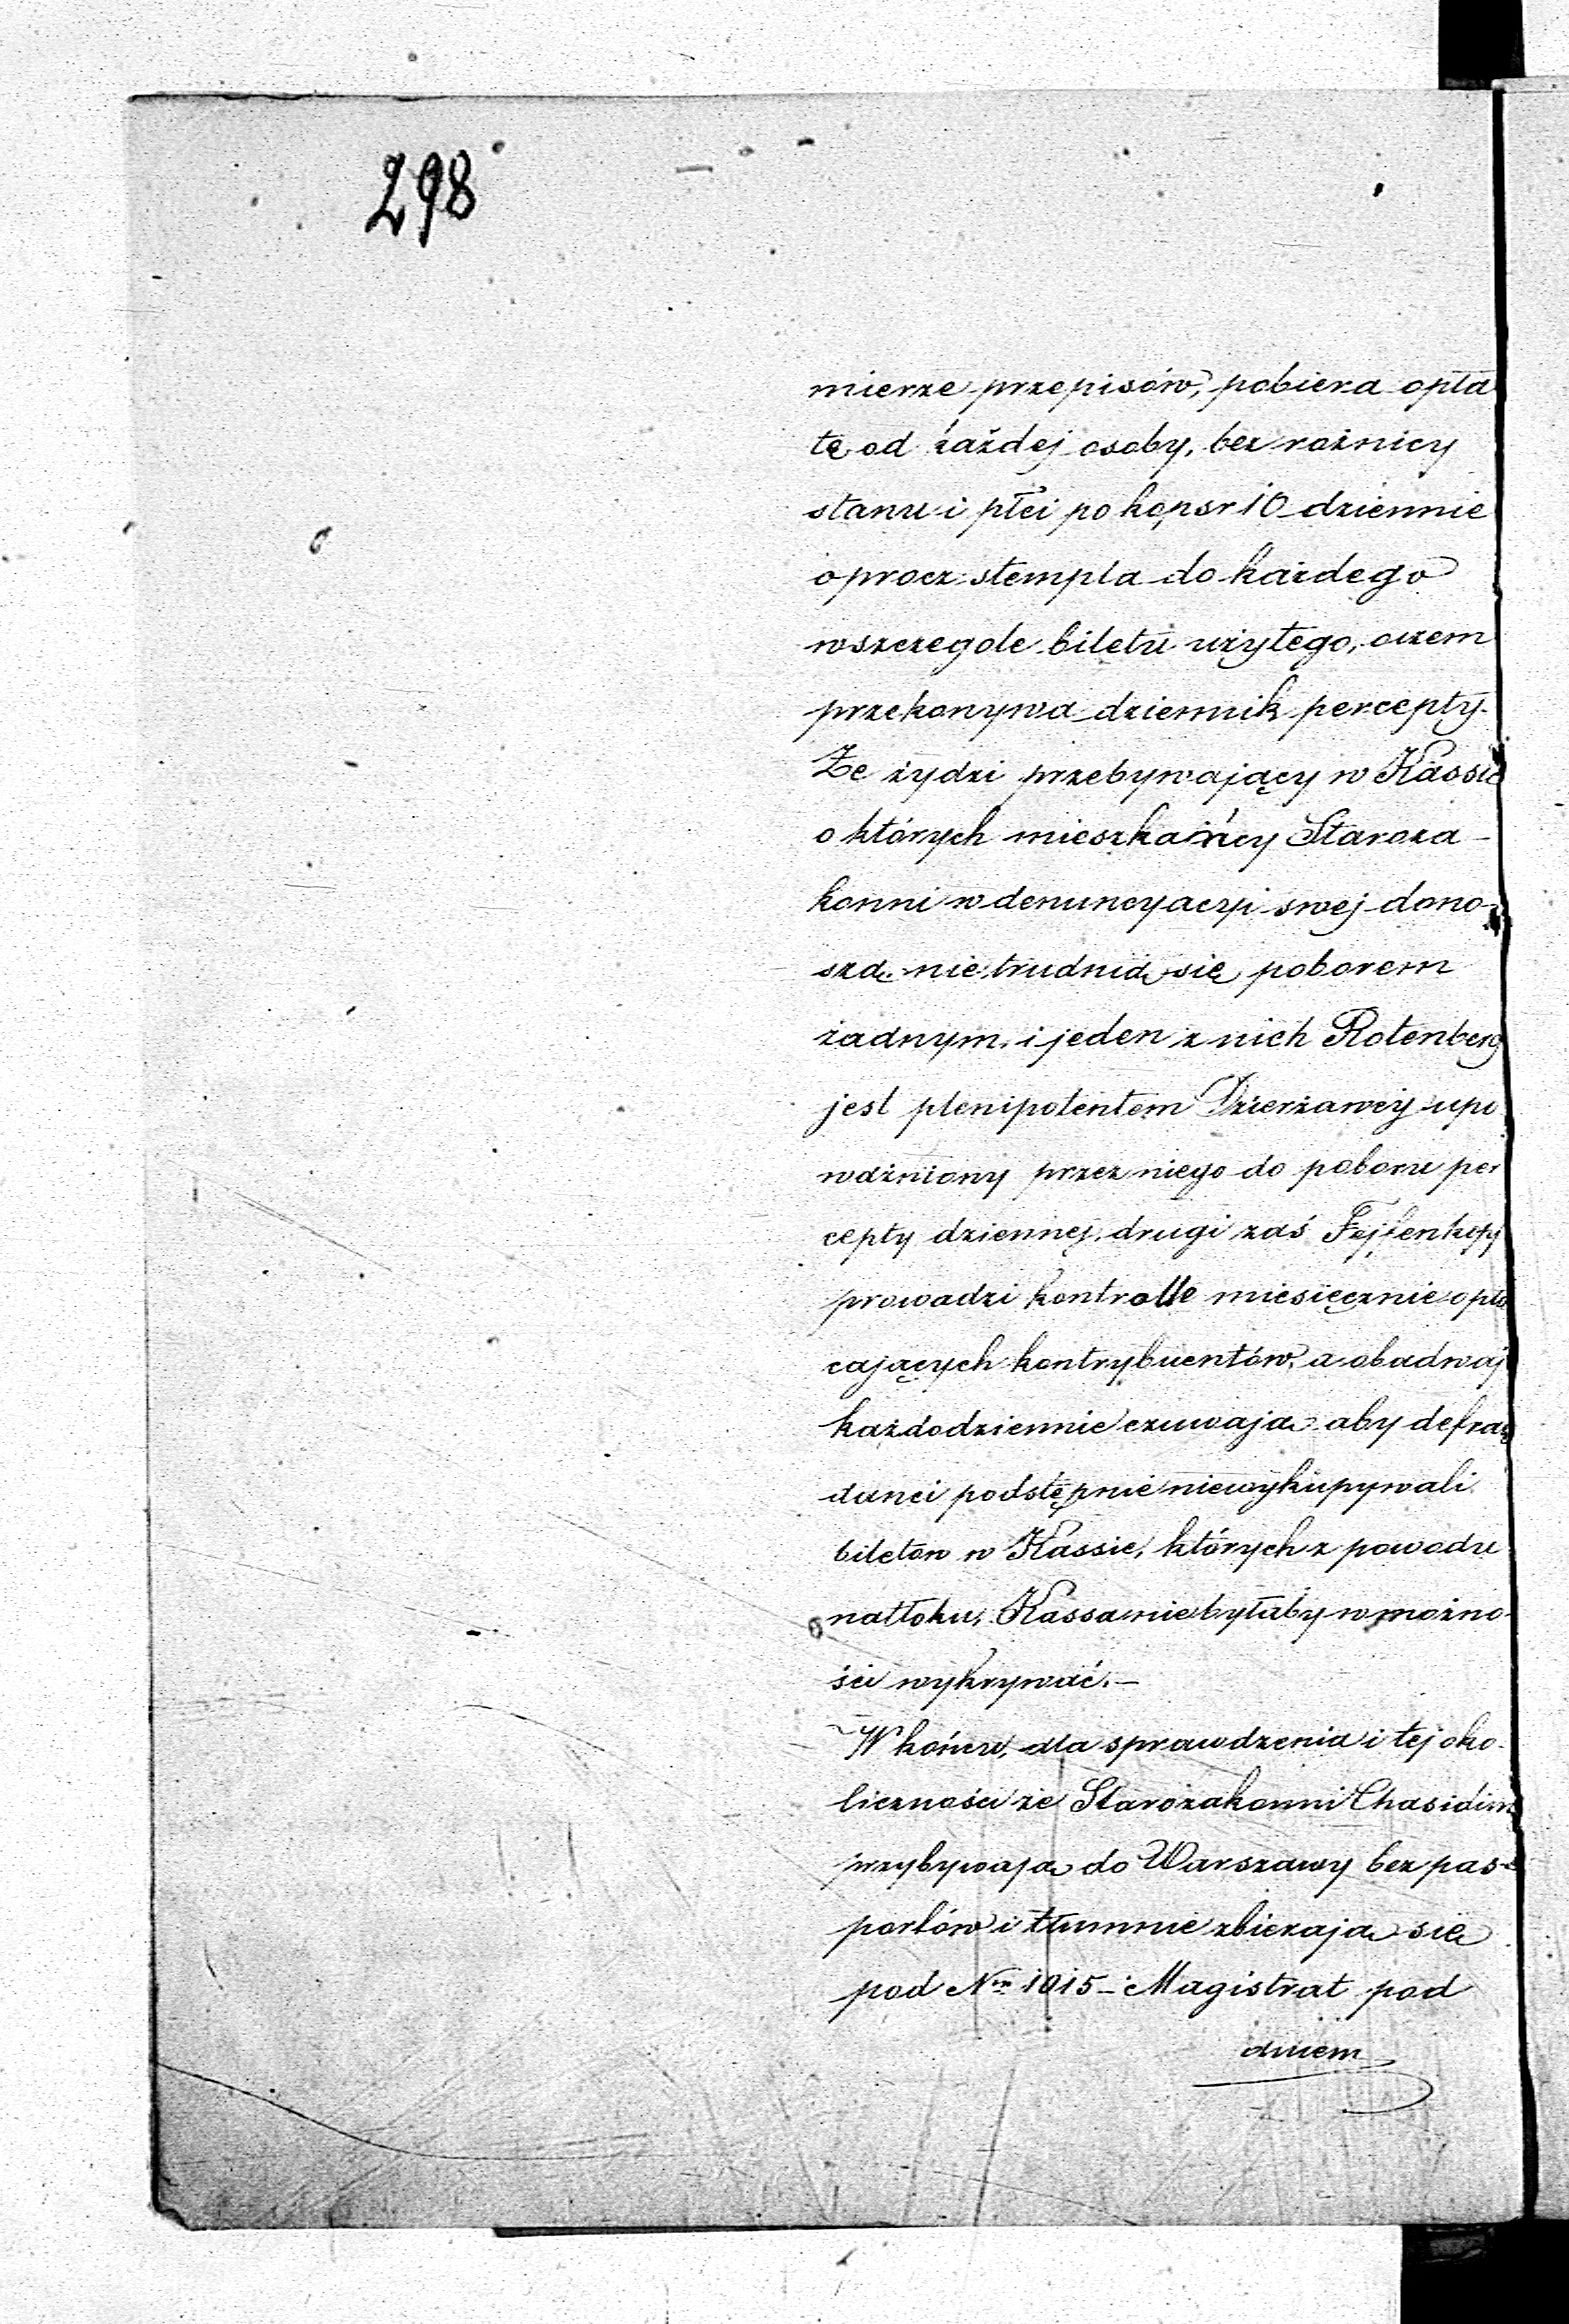 298
mierze przepisów, pobiera opła
tę od każdej osoby, bez rożnicy
stanu i płci po kopsr 10 dziennie
oprocz stempla do każdego
wszczegole biletu użytego, oczem
przekonywa dziennik percepty.
Że żydzi przebywający w Kassie
o których mieszkańcy Staroza-
konni w denuncyacyi swej dono-
szą nie trudnią się poborem
żadnym, i jeden z nich Rotenberg
jest plenipotentem Dzierżawcy upo
ważniony przez niego do poboru per
cepty dziennej, drugi zaś
prowadzi kontrolle miesięcznie opła
cających kontrybuentów, a obadwaj
każdodziennie czuwają aby defrau
danci podstępnie niewykupywali
biletów w Kassie, których z powodu
natłoku, Kassa niebyłaby w możno-
ści wykrywać.—
W końcu, dla sprawdzenia i tej oko-
liczności że Starozakonni Chasidim
przybywają do Warszawy bez pas-
portów i tłumnie zbierają się
pod Nrm 1015 – Magistrat pod
dniem